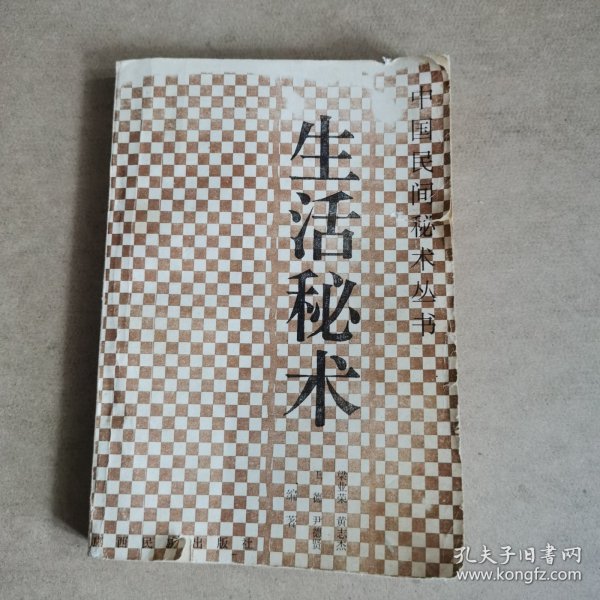 中国民间秘术丛书
生活秘术
梁业荣 黄志杰
德 尹德贤
编著
西民 出版社
孔夫子旧书网
www.kongfz.com